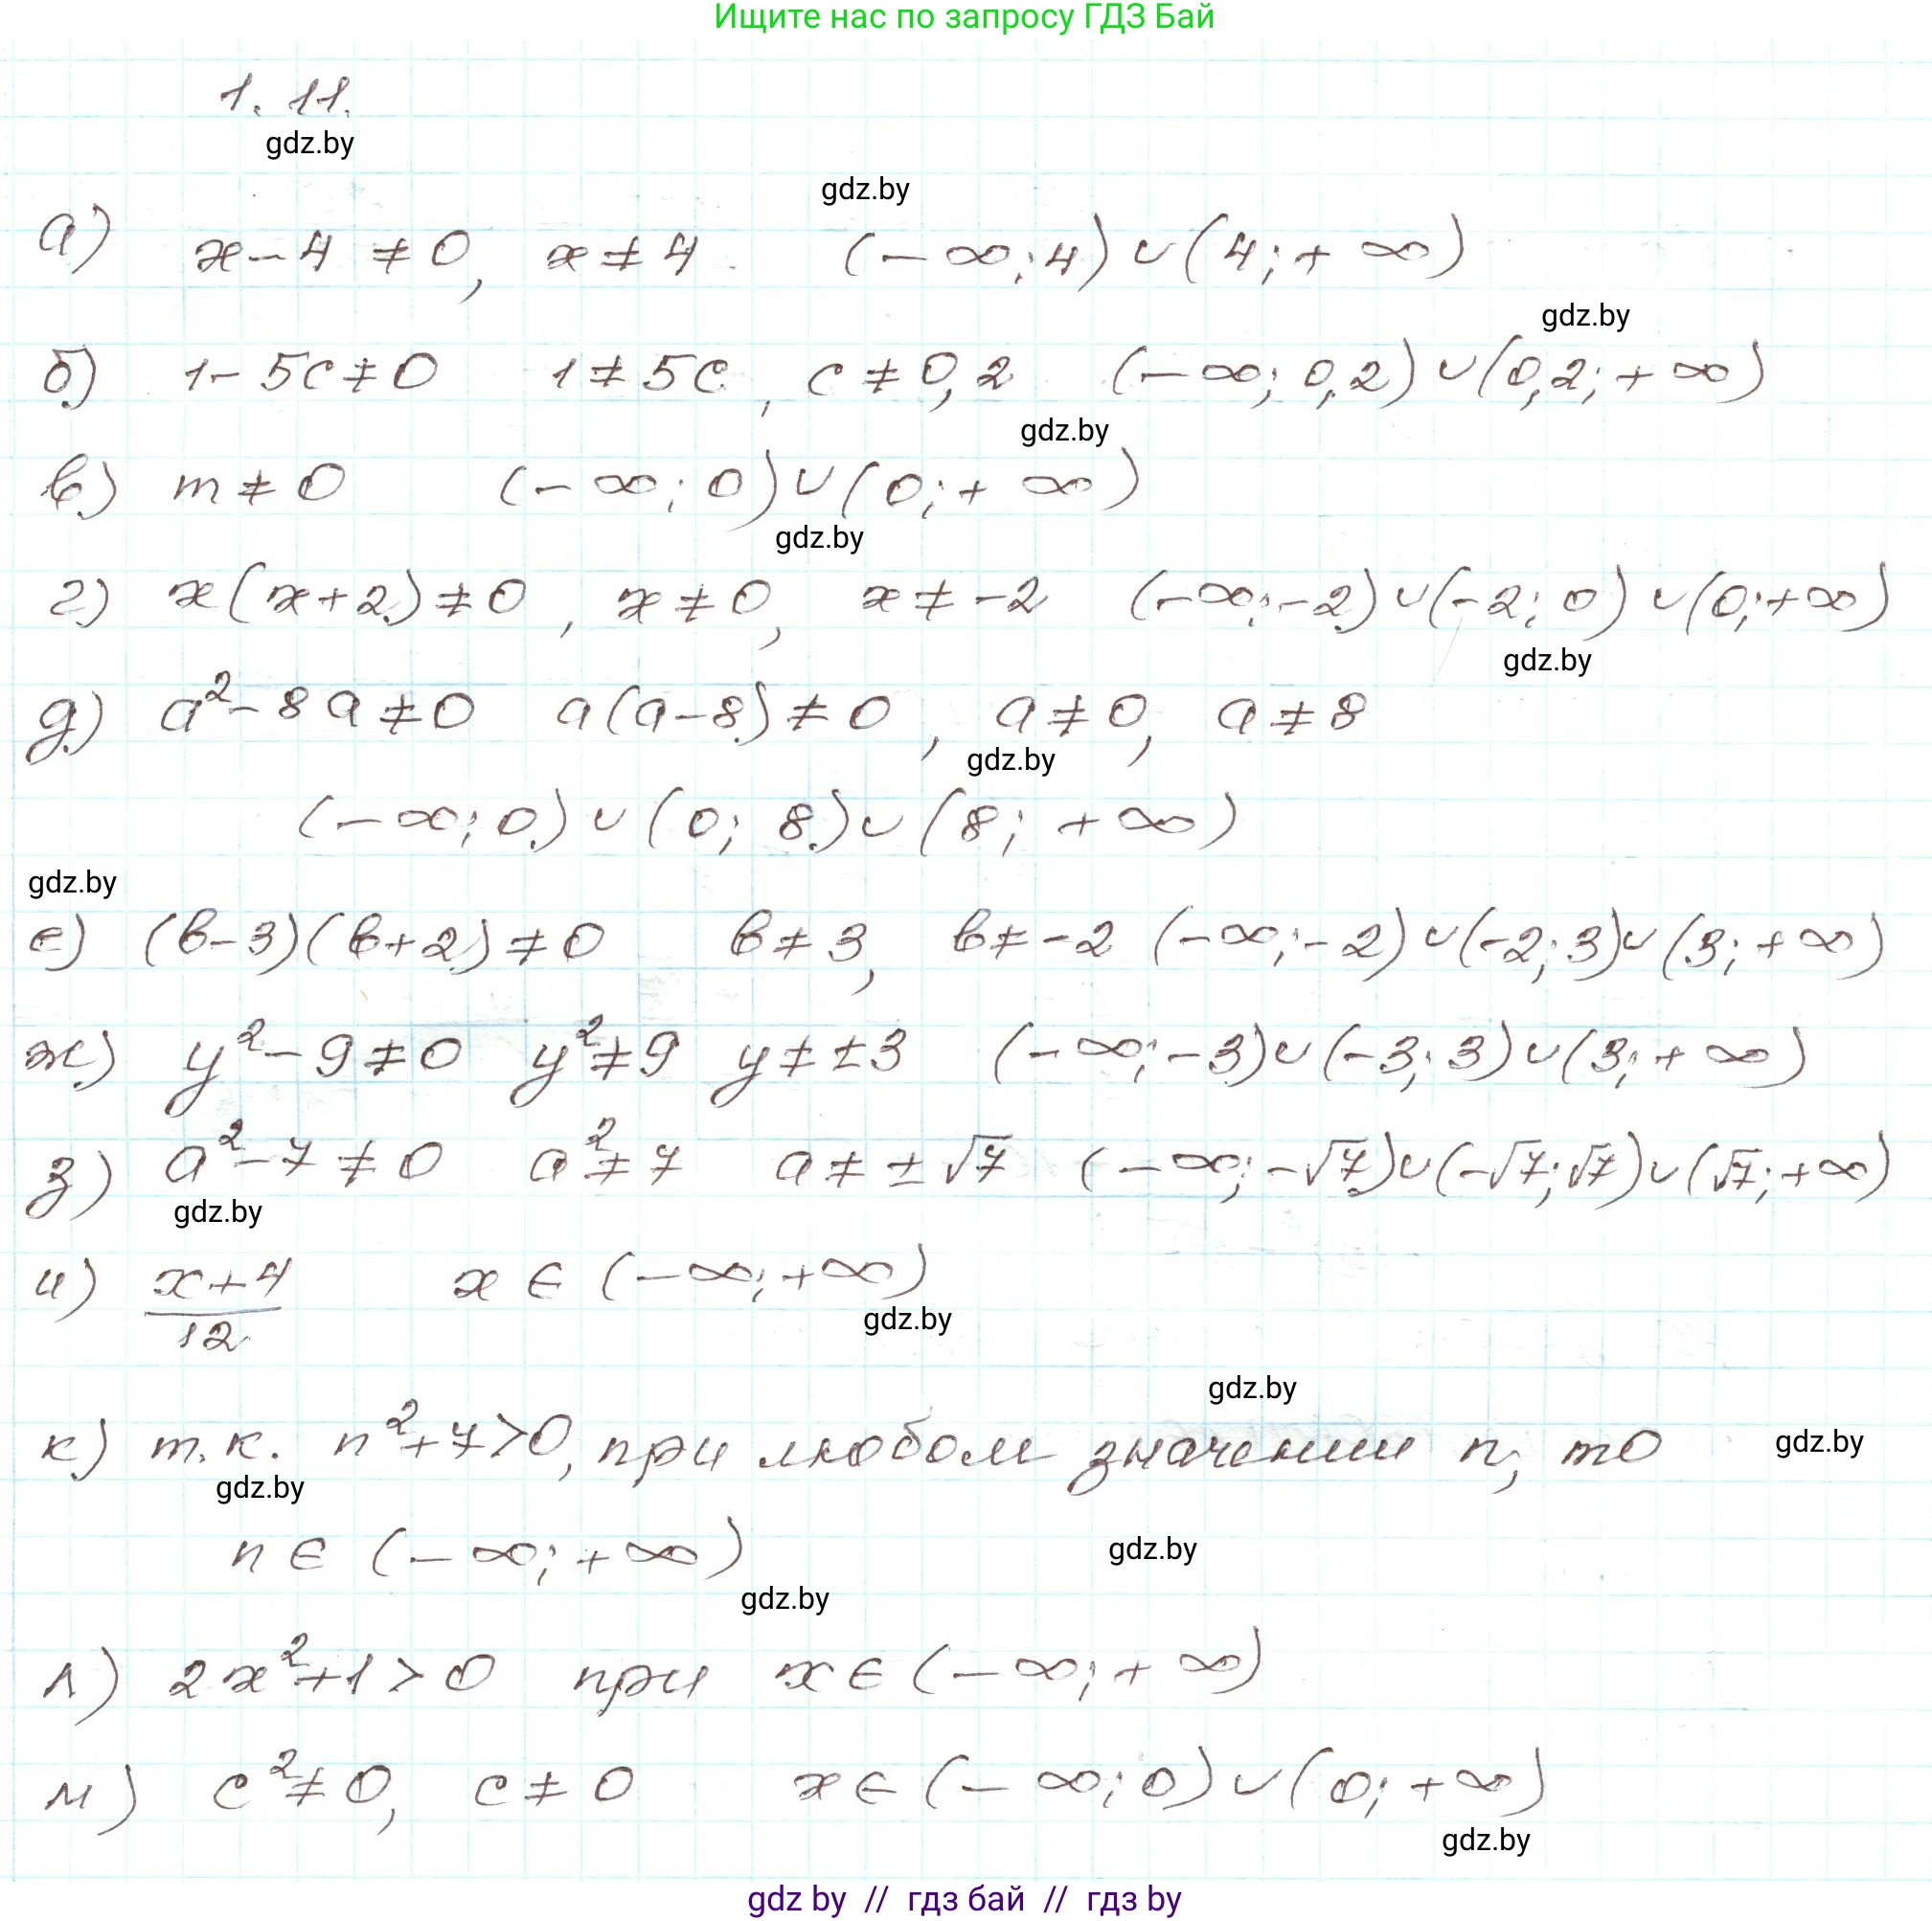 Ищите нас по запросу ГДЗ Бай
1.11.
gdz.by
gdz.by
а) x-4≠0, x≠4. (-∞;4)∪(4;+∞)
gdz.by
б) 1-5c≠0 1≠5c, c≠0,2 (-∞; 0,2)∪(0,2;+∞)
gdz.by
в) m≠0 (-∞; 0)∪(0;+∞)
gdz.by
г) x(x+2)≠0, x≠0, x≠-2 (-∞;-2)∪(-2; 0)∪(0;+∞)
gdz.by
д) a²-8a≠0 a(a-8)≠0, a≠0, a≠8
gdz.by
(-∞; 0)∪(0; 8)∪(8; +∞)
gdz.by
е) (b-3)(b+2)≠0 b≠3, b≠-2 (-∞;-2)∪(-2;3)∪(3;+∞)
ж) y²-9≠0 y²≠9 y≠±3 (-∞;-3)∪(-3;3)∪(3;+∞)
з) a²-7≠0 a²≠7 a≠±√7 (-∞;-√7)∪(-√7;√7)∪(√7;+∞)
gdz.by
и) x+4/12 x∈(-∞;+∞)
gdz.by
gdz.by
к) т.к. n²+7>0, при любом значении n, то
gdz.by
gdz.by
n∈(-∞;+∞)
gdz.by
gdz.by
л) 2x²+1>0 при x∈(-∞;+∞)
м) c²≠0, c≠0 x∈(-∞;0)∪(0;+∞)
gdz.by
gdz by // гдз бай // гдз by